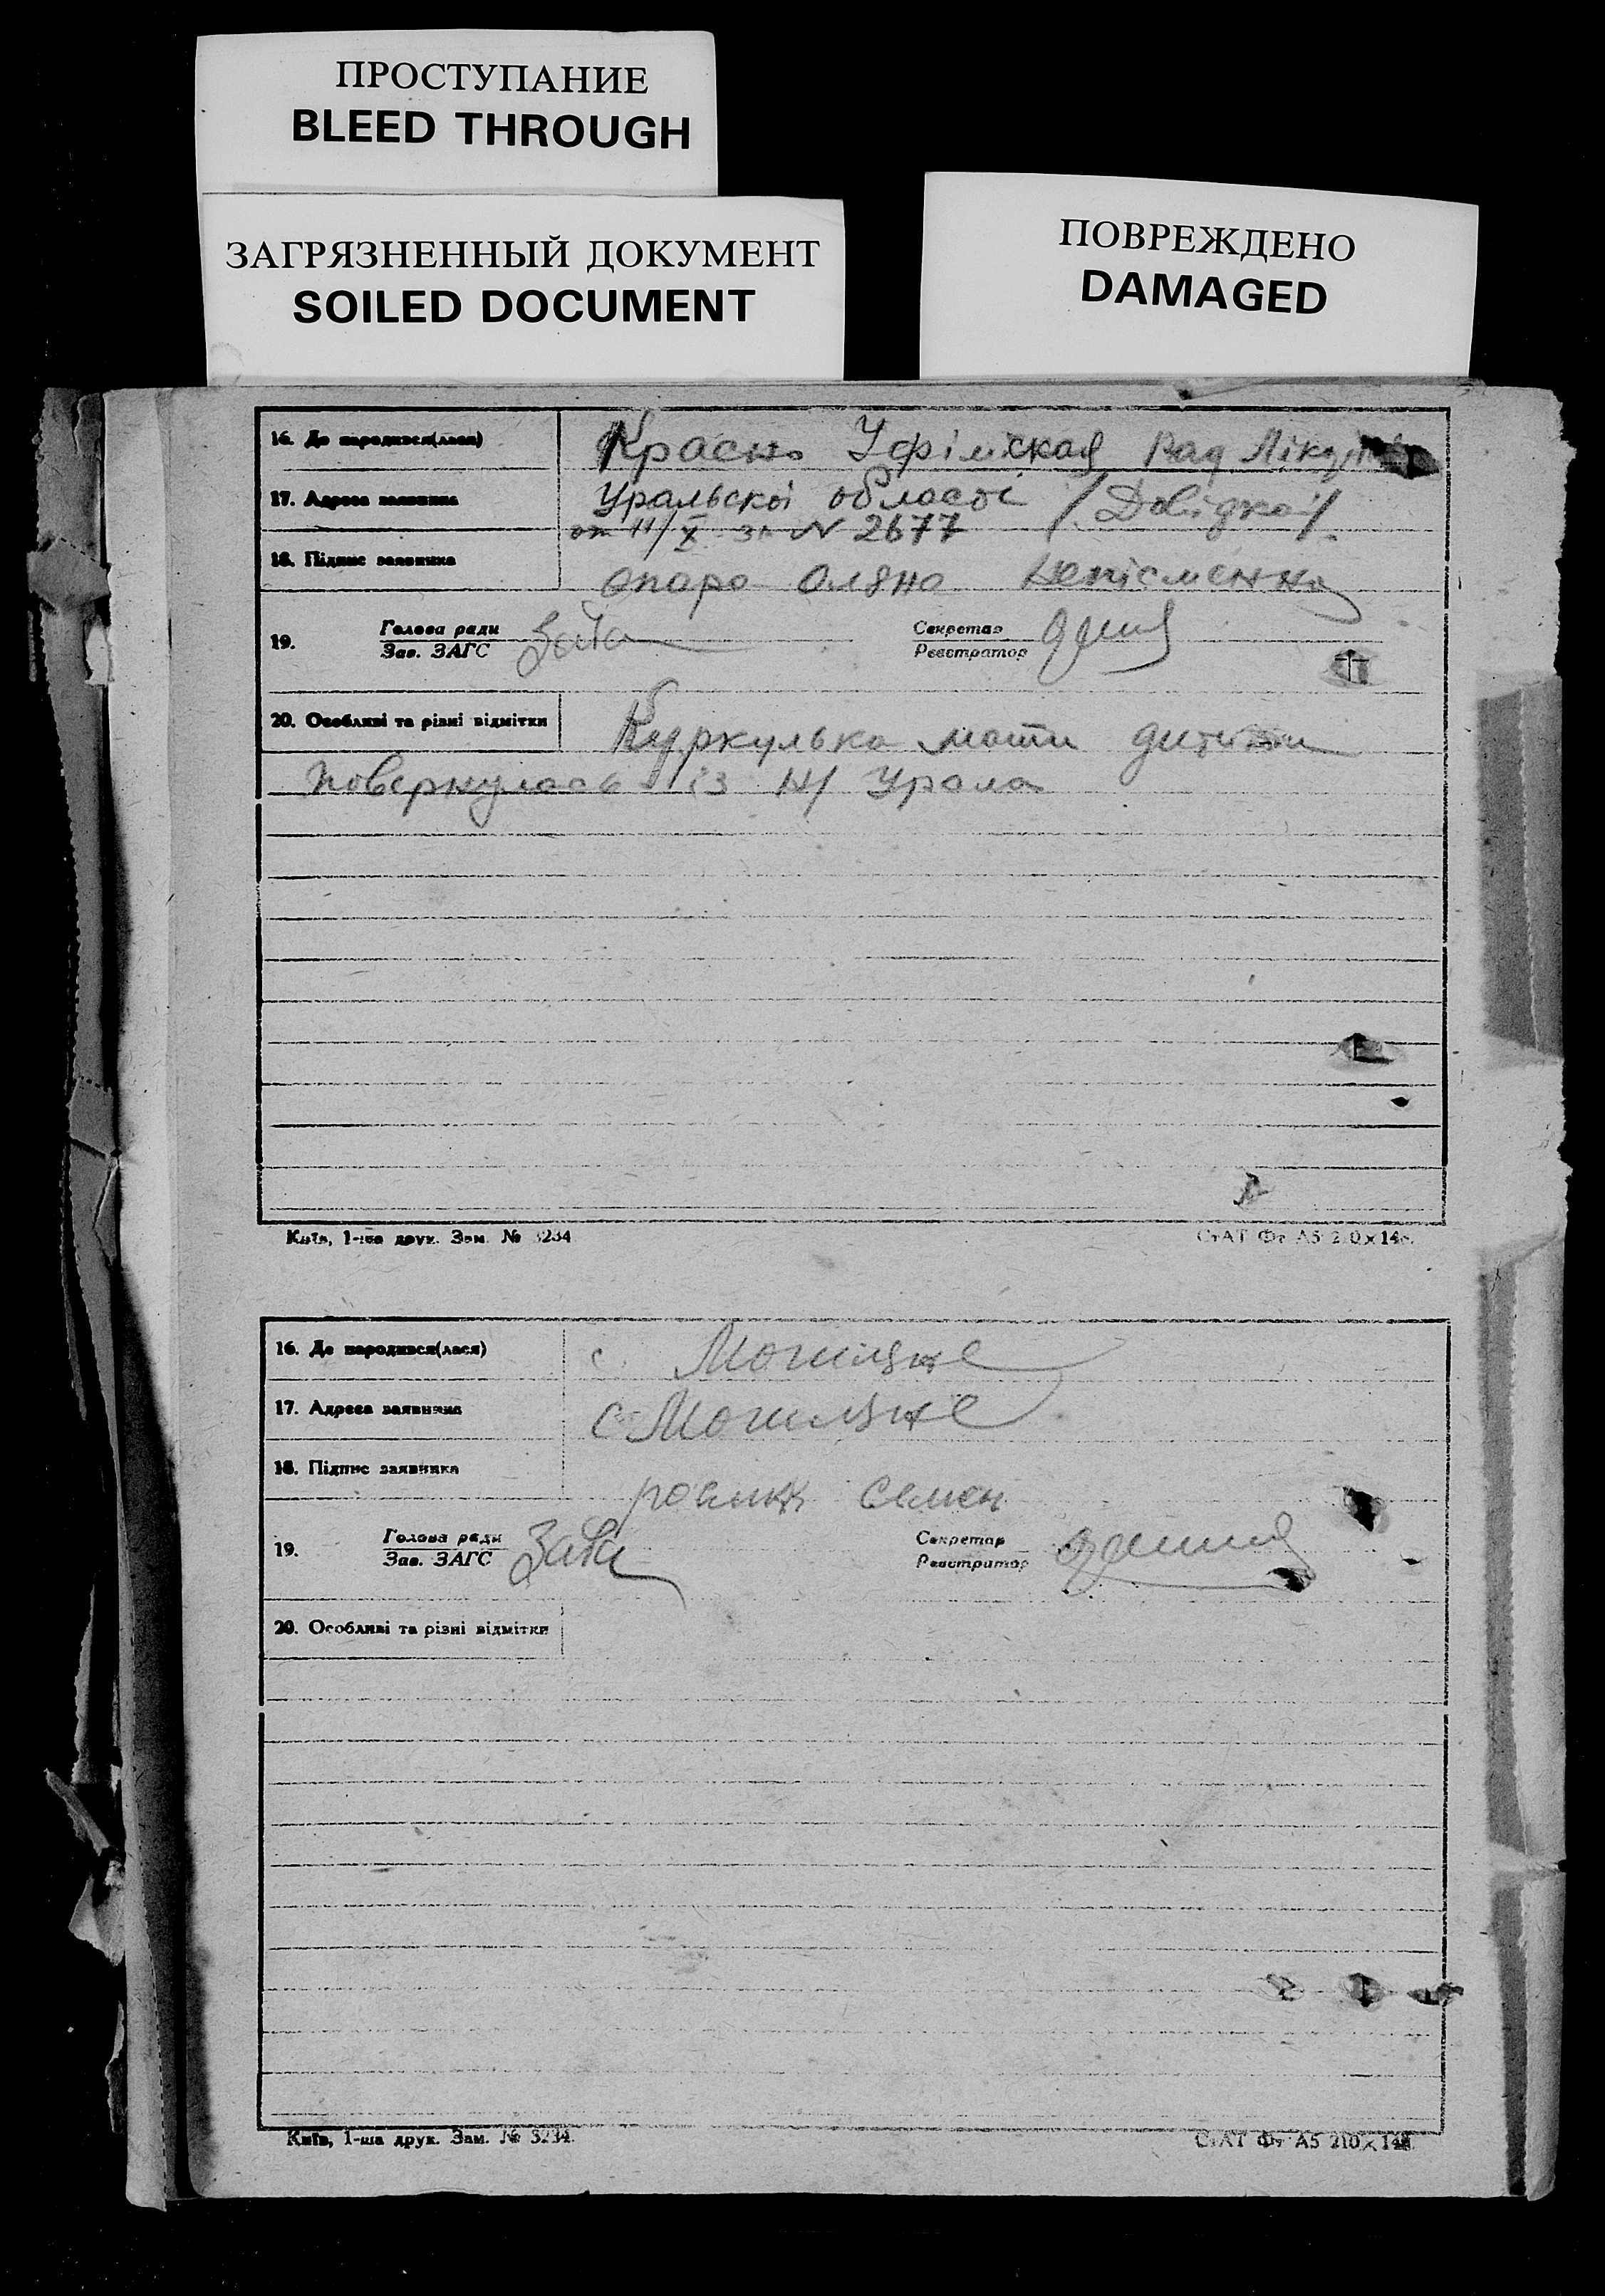 ПРОСТУПАНИЕ
BLEED THROUGH
ЗАГРЯЗНЕННЫЙ ДОКУМЕНТ
SOILED DOCUMENT
ПОВРЕЖДЕНО
DAMAGED
16. Де народився(лася) Красно Уфімская Рад
17. Адреса заявника Уральскоі області /Довідка/.
от 11/X 31 N 2677
18. Підпис заявника опара Оляна непісменна
19. Голова ради Секретар
Зав. ЗАГС Реєстратор
20. Особливі та різні відмітки Куркулька мати дитини
повернулась із Н/ Урала
Київ, 1-ша друк. Зам. № 3234 СтАТ Фт А5 210×148.
16. Де народився(лася) с. Могиляне
17. Адреса заявника с Могиляне
18. Підпис заявника Семен
19. Голова ради Секретар
Зав. ЗАГС Реєстратор
20. Особливі та різні відмітки
Київ, 1-ша друк. Зам. № 3234. СтАТ Фт А5 210×148.